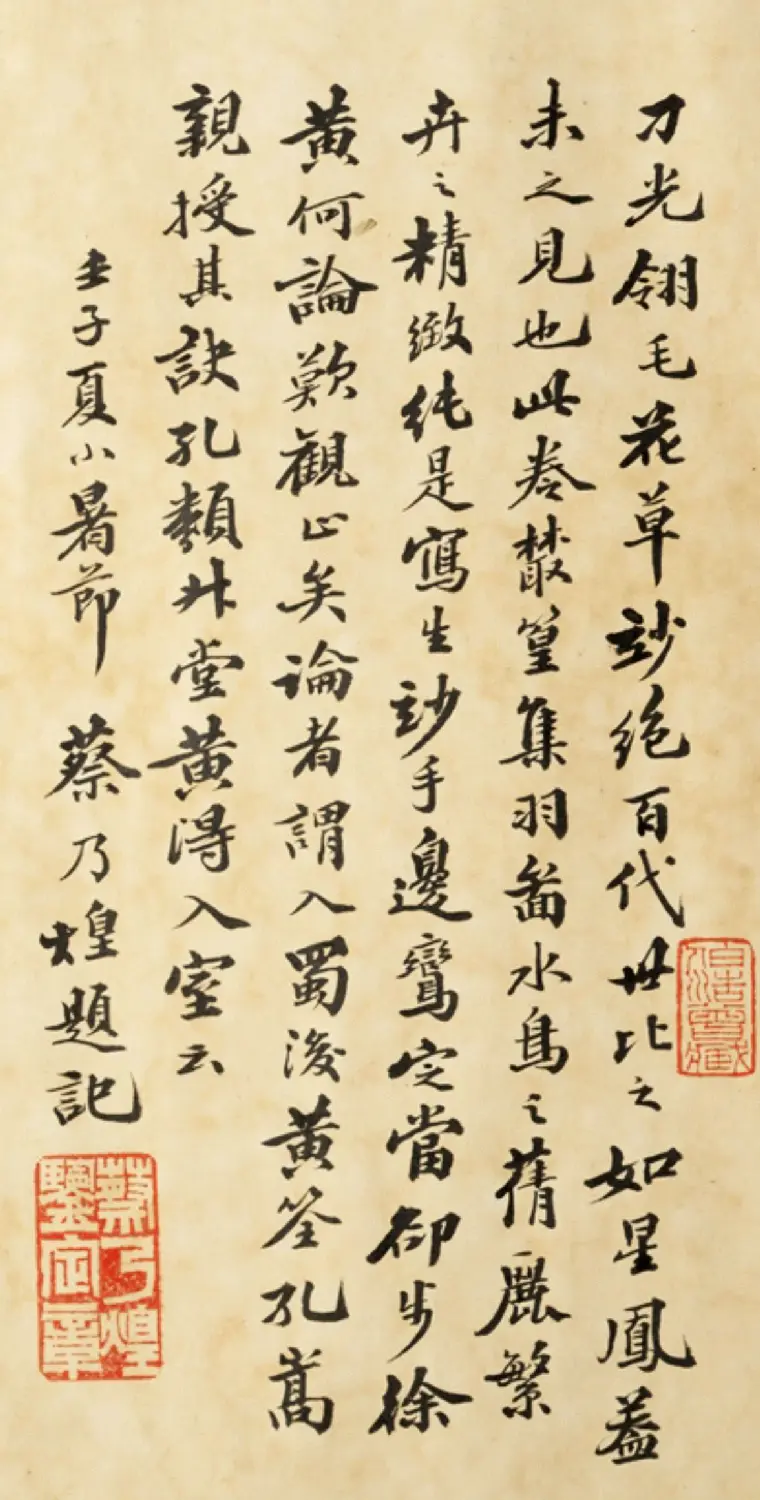 刁光翎毛花草竗絕百代世比之如星鳳蓋
未之見也此卷叢篁集羽圖水鳥之蒨麗繁
卉之精緻純是寫生竗手邊鸞定當却步徐
黃何論歎觀止矣論者謂入蜀後黃筌孔嵩
親授其訣孔類升堂黃得入室云
壬子夏小暑節 蔡乃煌題記
伯浩曾藏
蔡乃煌鑒定章